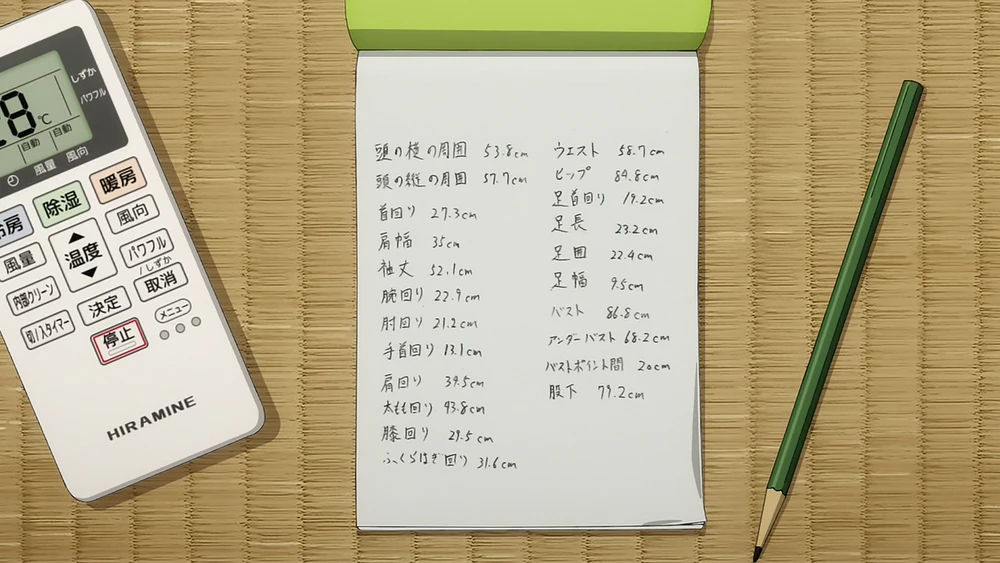 しずか
パワフル
8℃
自動
自動
風量
風向
暖房
除湿
冷房
風向
温度
風量
パワフル
/しずか
内部クリーン
取消
決定
切/入タイマー
メニュー
停止
HIRAMINE
頭の横の周囲 53.8cm
頭の縦の周囲 57.7cm
首回り 27.3cm
肩幅 35cm
袖丈 52.1cm
腕回り 22.9cm
肘回り 21.2cm
手首回り 13.1cm
肩回り 39.5cm
太もも回り 43.8cm
膝回り 29.5cm
ふくらはぎ回り 31.6cm
ウエスト 58.7cm
ヒップ 84.8cm
足首回り 19.2cm
足長 23.2cm
足囲 22.4cm
足幅 9.5cm
バスト 86.8cm
アンダーバスト 68.2cm
バストポイント間 20cm
股下 79.2cm